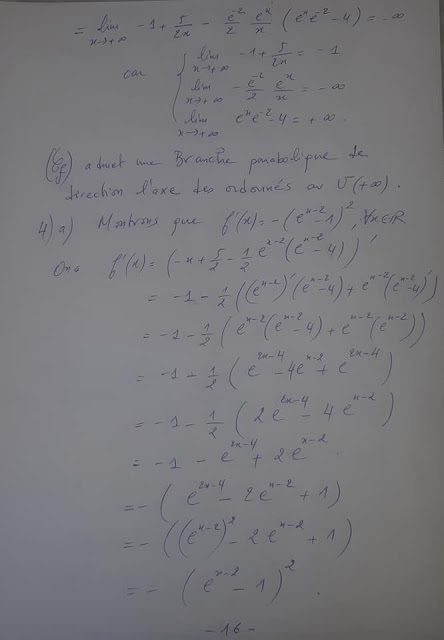 = lim x→+∞ -1 + 5/2x - e^-2/2 e^x/x (e^x e^-2 - 4) = -∞
car { lim x→+∞ -1 + 5/2x = -1
lim x→+∞ - e^-2/2 e^x/x = -∞
lim x→+∞ e^x e^-2 - 4 = +∞.
(Cf) admet une Branche parabolique de
direction l'axe des ordonnés au V(+∞).
4) a) Montrons que f'(x) = -(e^x-2 - 1)^2, ∀x∈ℝ
On a f'(x) = (-x + 5/2 - 1/2 e^x-2 (e^x-2 - 4))'
= -1 - 1/2 ((e^x-2)' (e^x-2 - 4) + e^x-2 (e^x-2 - 4)')
= -1 - 1/2 (e^x-2 (e^x-2 - 4) + e^x-2 (e^x-2))
= -1 - 1/2 (e^2x-4 - 4e^x-2 + e^2x-4)
= -1 - 1/2 (2e^2x-4 - 4e^x-2)
= -1 - e^2x-4 + 2e^x-2.
= -(e^2x-4 - 2e^x-2 + 1)
= -((e^x-2)^2 - 2e^x-2 + 1)
= -(e^x-2 - 1)^2.
-16-